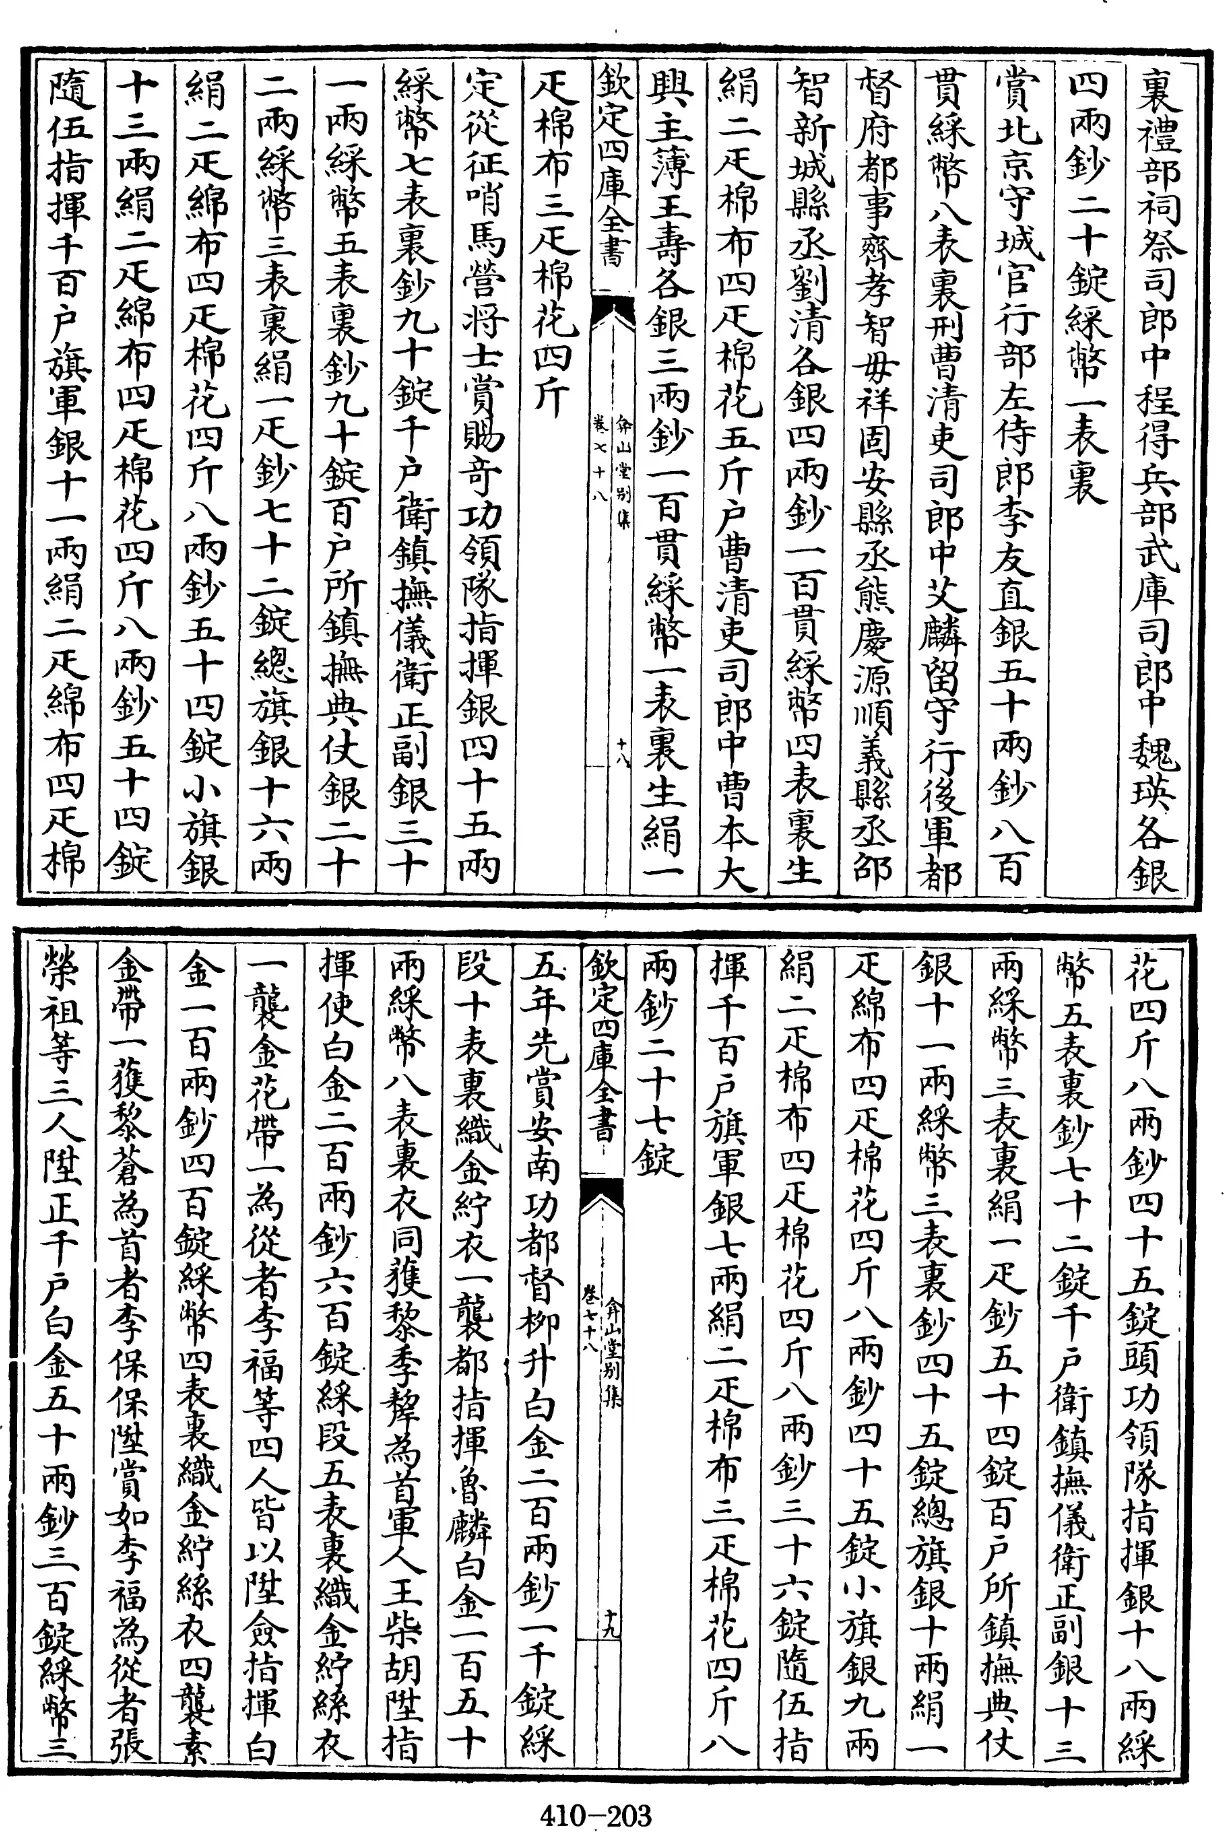 裏禮部祠祭司郎中程得兵部武庫司郎中魏瑛各銀
四兩鈔二十錠綵幣一表裏
賞北京守城官行部左侍郎李友直銀五十兩鈔八百
貫綵幣八表裏刑曹清吏司郎中艾麟留守行後軍都
督府都事齊孝智毋祥固安縣丞熊慶源順義縣丞邵
智新城縣丞劉清各銀四兩鈔一百貫綵幣四表裏生
絹二疋棉布四疋棉花五斤户曹清吏司郎中曹本大
興主薄王壽各銀三兩鈔一百貫綵幣一表裏生絹一
欽定四庫全書
弇山堂别集
卷七十八
十八
疋棉布三疋棉花四斤
定從征哨馬營將士賞賜奇功領隊指揮銀四十五兩
綵幣七表裏鈔九十錠千户衛鎮撫儀衛正副銀三十
一兩綵幣五表裏鈔九十錠百户所鎮撫典仗銀二十
二兩綵幣三表裏絹一疋鈔七十二錠總旗銀十六兩
絹二疋綿布四疋棉花四斤八兩鈔五十四錠小旗銀
十三兩絹二疋綿布四疋棉花四斤八兩鈔五十四錠
隨伍指揮千百户旗軍銀十一兩絹二疋綿布四疋棉
花四斤八兩鈔四十五錠頭功領隊指揮銀十八兩綵
幣五表裏鈔七十二錠千户衛鎮撫儀衛正副銀十三
兩綵幣三表裏絹一疋鈔五十四錠百户所鎮撫典仗
銀十一兩綵幣三表裏鈔四十五錠總旗銀十兩絹一
疋綿布四疋棉花四斤八兩鈔四十五錠小旗銀九兩
絹二疋棉布四疋棉花四斤八兩鈔三十六錠隨伍指
揮千百户旗軍銀七兩絹二疋棉布三疋棉花四斤八
兩鈔二十七錠
欽定四庫全書
弇山堂别集
卷七十八
十九
五年先賞安南功都督柳升白金二百兩鈔一千錠綵
段十表裏織金紵衣一襲都指揮魯麟白金一百五十
兩綵幣八表裏衣同獲黎季犛為首軍人王柴胡陞指
揮使白金二百兩鈔六百錠綵段五表裏織金紵絲衣
一襲金花帶一為從者李福等四人皆以陞僉指揮白
金一百兩鈔四百錠綵幣四表裏織金紵絲衣四襲素
金帶一獲黎蒼為首者李保保陞賞如李福為從者張
榮祖等三人陞正千户白金五十兩鈔三百錠綵幣三
410-203